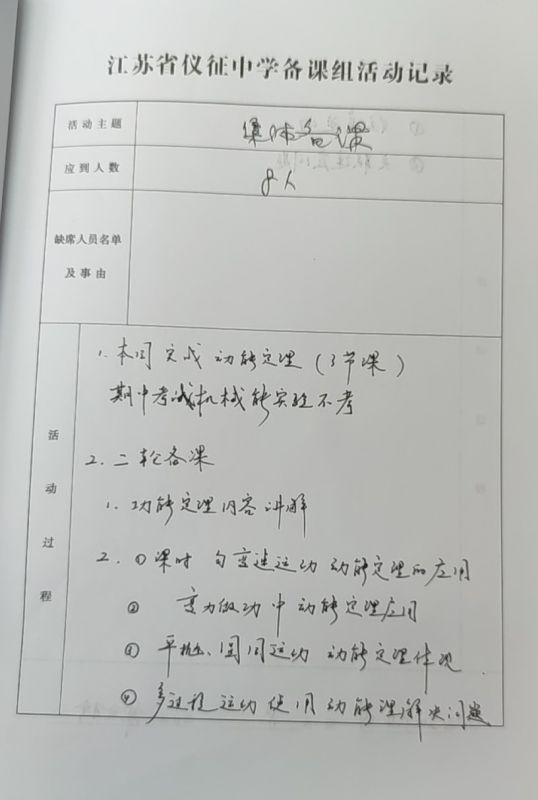 江苏省仪征中学备课组活动记录
活动主题 集体备课
应到人数 8人
缺席人员名单
及事由
活动过程
1. 本周完成动能定理(3节课)
期中考试机械能实验不考
2. 二轮备课
1. 功能定理内容讲解
2. ①课时 匀变速运动 动能定理的应用
② 变力做功中动能定理应用
③ 平抛、圆周运动 动能定理体现
④ 多过程运动使用动能理解决问题